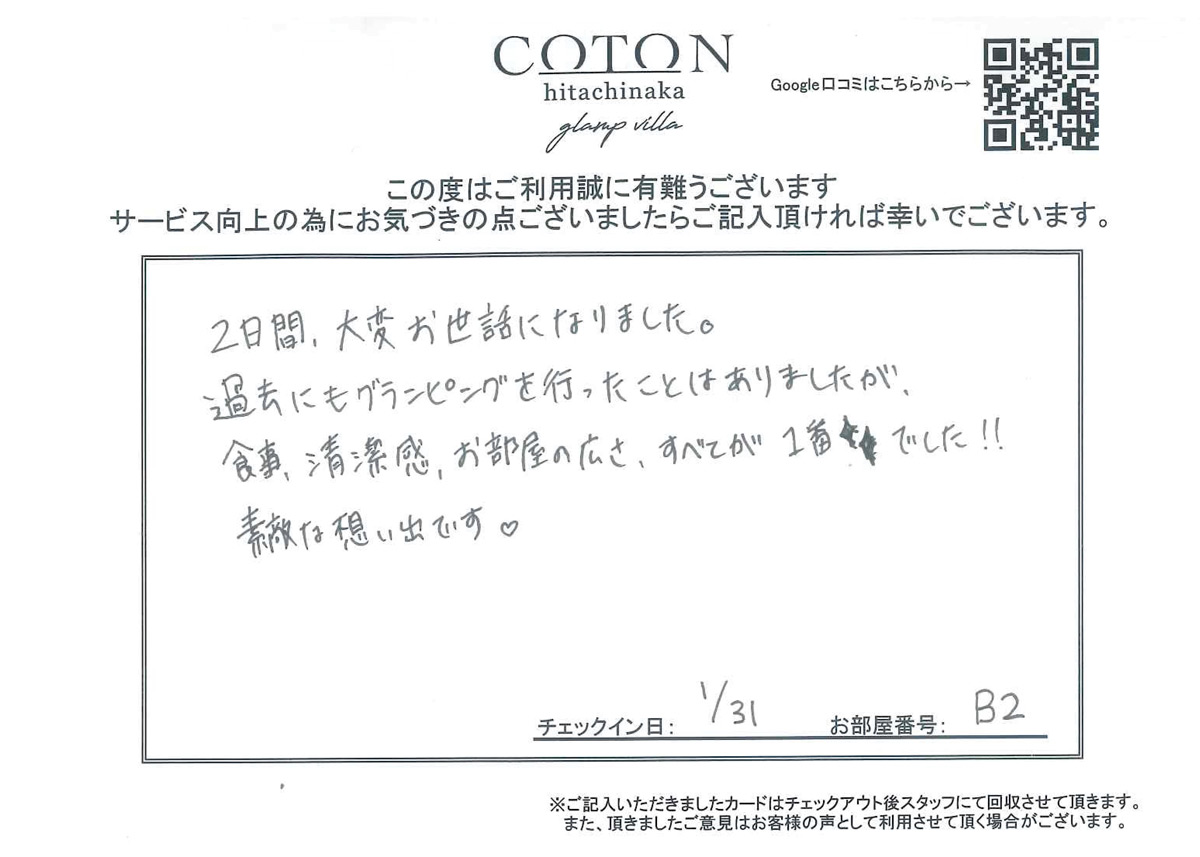 COTON
hitachinaka
glamp villa
Google口コミはこちらから→
この度はご利用誠に有難うございます
サービス向上の為にお気づきの点ございましたらご記入頂ければ幸いでございます。
2日間、大変お世話になりました。
過去にもグランピングを行ったことはありましたが、
食事、清潔感、お部屋の広さ、すべてが1番でした!!
素敵な想い出です♡
チェックイン日： 1/31 お部屋番号： B2
※ご記入いただきましたカードはチェックアウト後スタッフにて回収させて頂きます。
また、頂きましたご意見はお客様の声として利用させて頂く場合がございます。